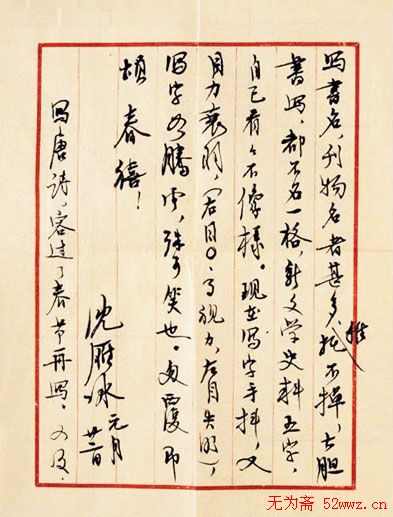 写書名,刊物名者甚多,推托不掉,大胆
書写,都不名一格,新文学史料五字,
自己看々不像樣。现在写字手抖,又
目力衰弱,(右目〇.3视力,左目失明),
写字如腾雲,殊可笑也。匆覆即
頌春禧!
沈雁冰 元月廿二日
写唐诗,容过了春节再写。又及。
无为斋 52wwz.cn